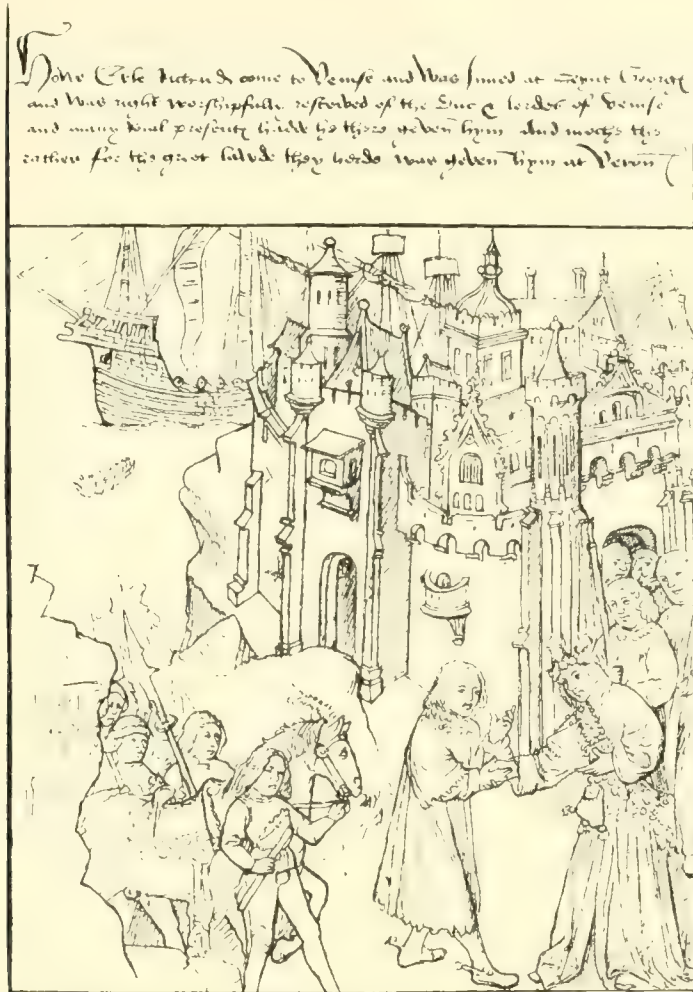 Howe Erle Richard come to Venise and was Inned at Seynt Georges
and was right worshipfully resceived of the Duc & lordes of Venise
and many roial presentz hadde he there geven hym And moche the
rather for the gret laude they herde was geven hym at Veron